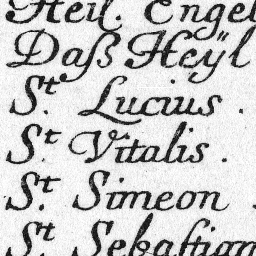 Heil. Engel
Daß Heÿl
St. Lucius.
St. Vitalis.
St. Simeon.
St. Sebastian